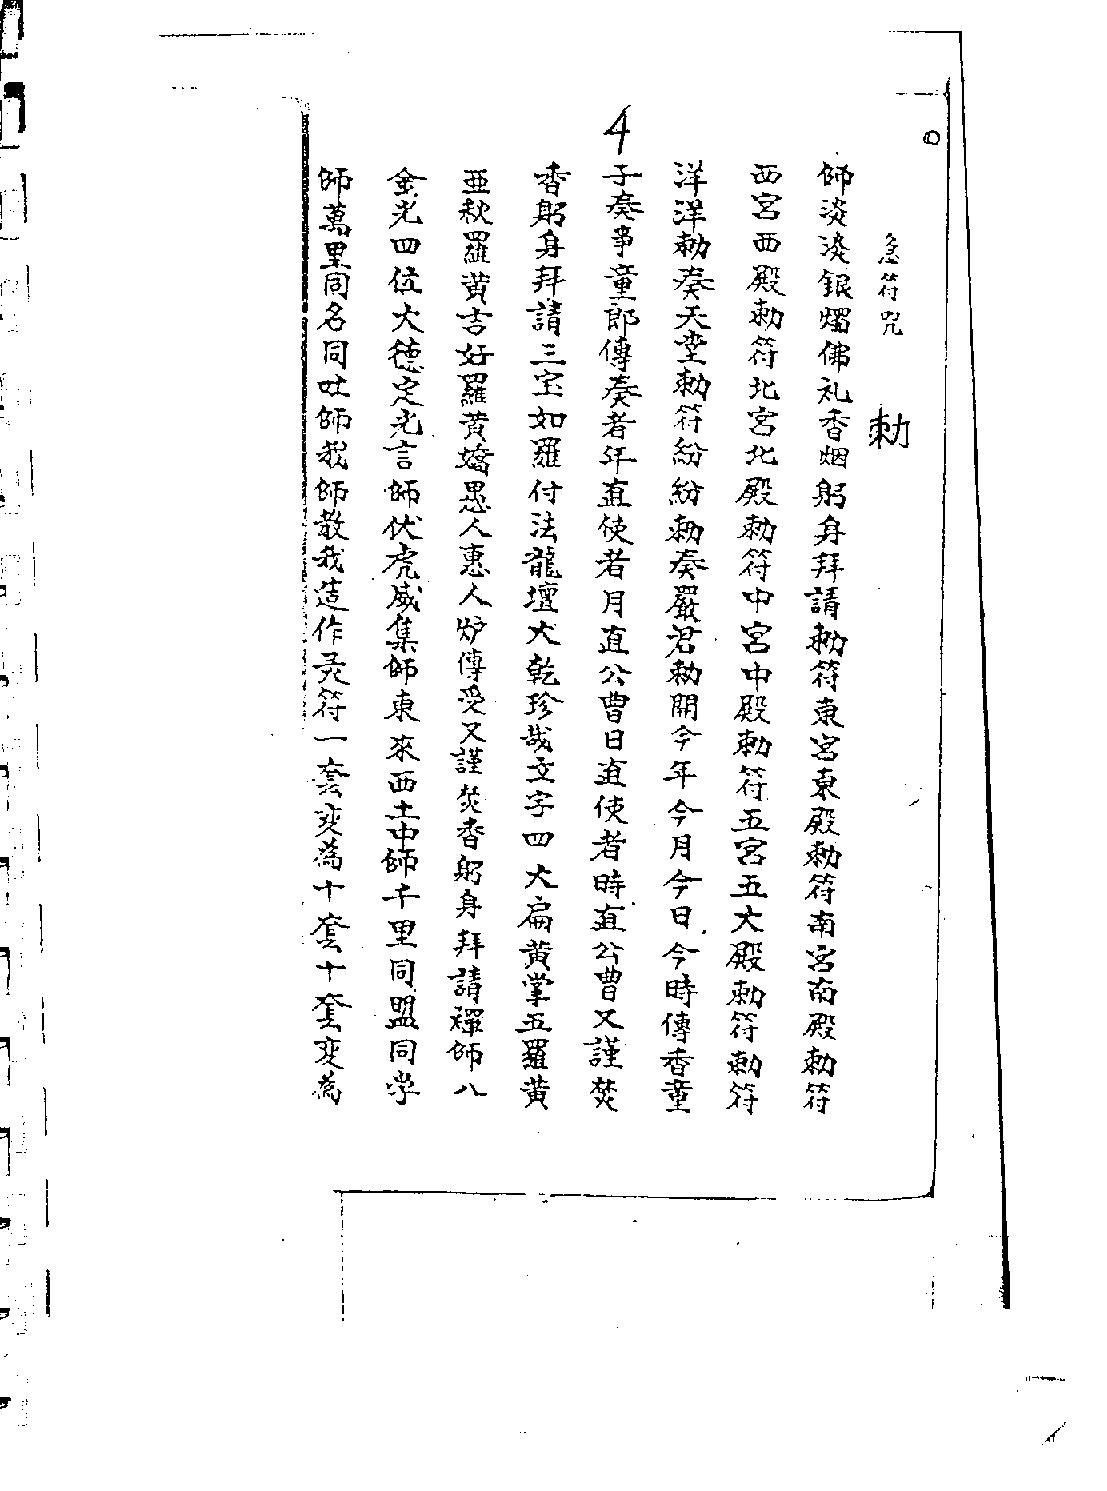 4
急符咒 勅
師淡淡銀燭佛礼香烟躬身拜請勅符東宮東殿勅符南宮南殿勅符
西宮西殿勅符北宮北殿勅符中宮中殿勅符五宮五大殿勅符勅符
洋洋勅奏天堂勅符紛紛勅奏嚴君勅開今年今月今日今時傳香童
子奏事童郎傳奏者年直使者月直公曹日直使者時直公曹又謹焚
香躬身拜請三宝如羅付法龍壇大乾珍哉文字四大扁黄掌五羅黄
亜秋羅黄吉好羅黄嬌愚人惠人炉傳受又謹焚香躬身拜請禪師八
金光四位大德定光言師伏虎威集師東來西土中師千里同盟同学
師萬里同名同吐師我師教我造作灵符一套変為十套十套変為